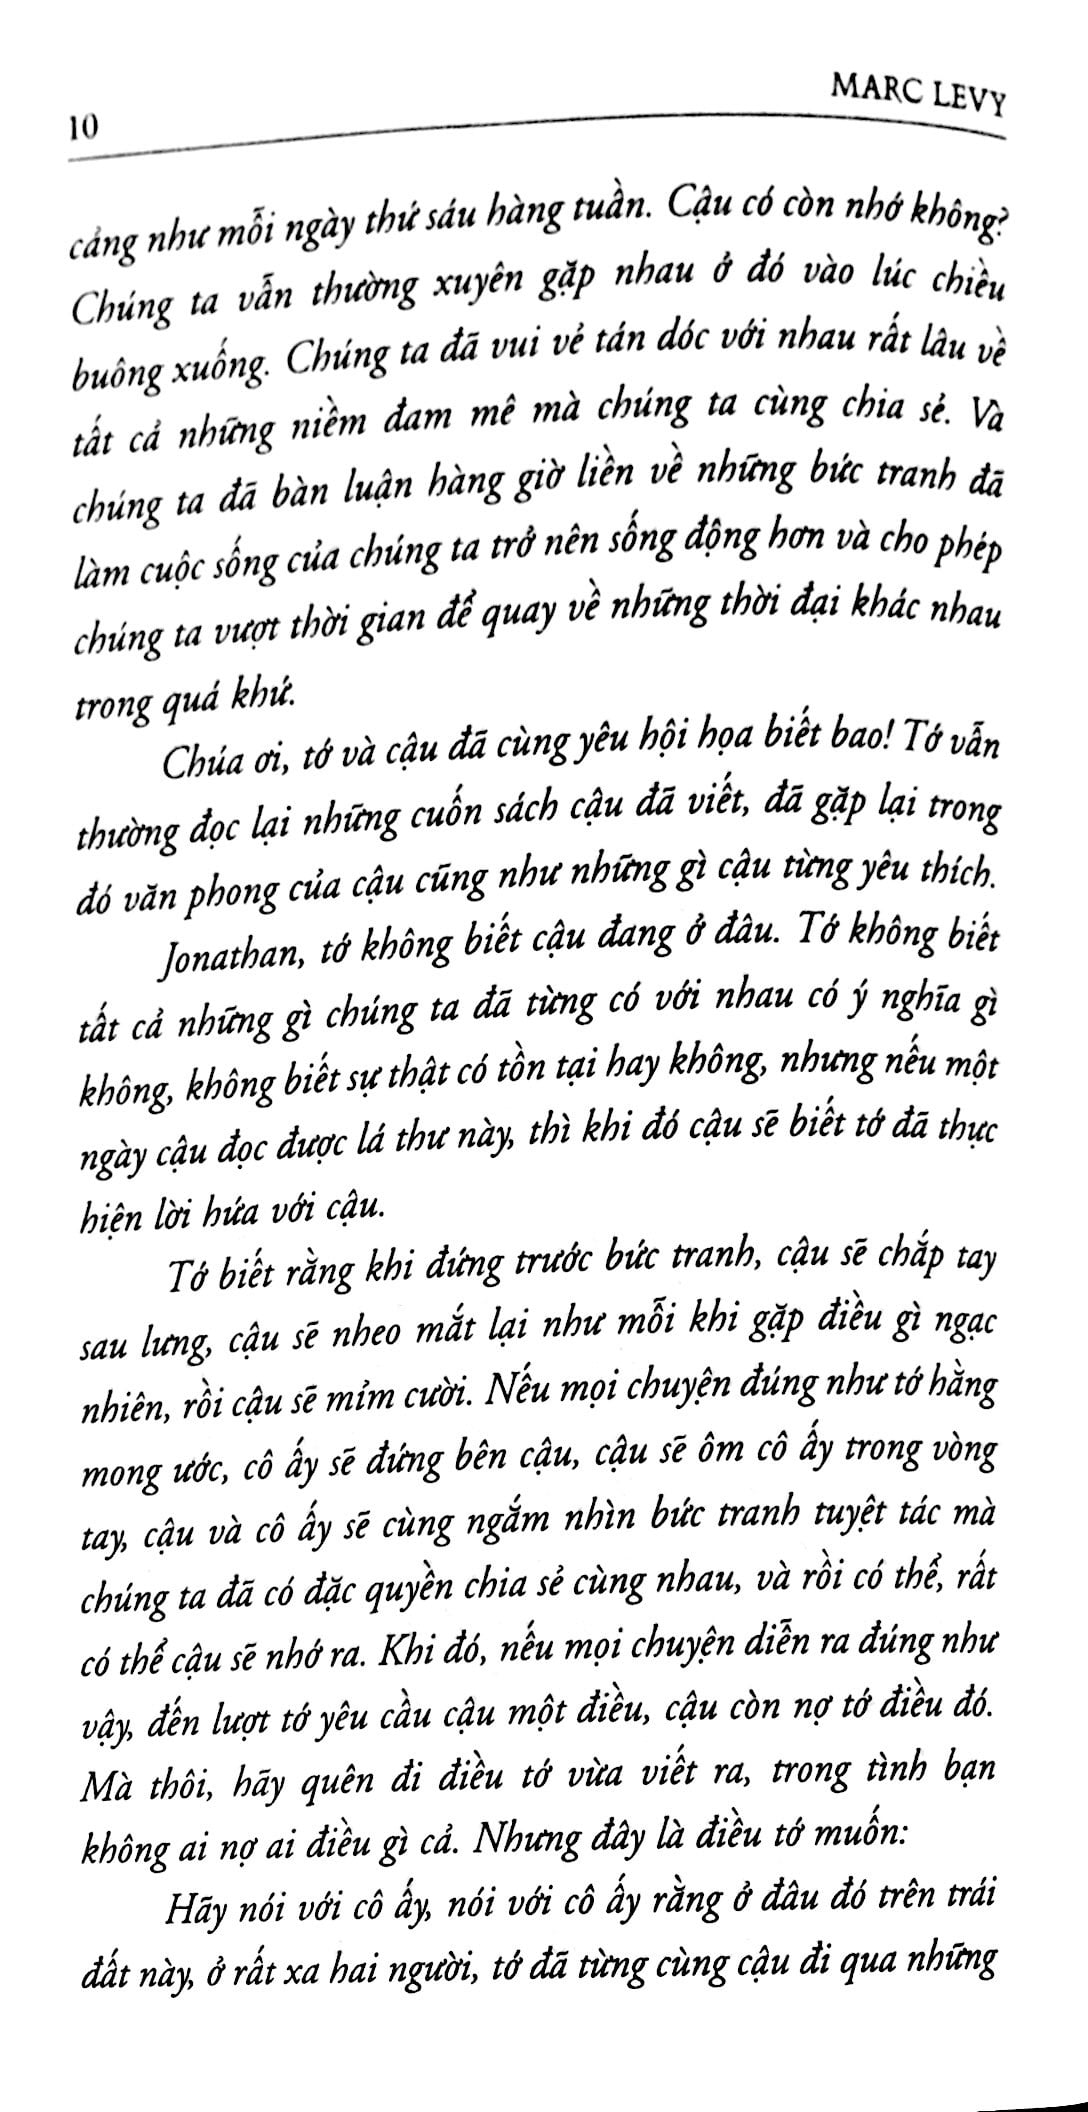 10
MARC LEVY
cảng như mỗi ngày thứ sáu hàng tuần. Cậu có còn nhớ không?
Chúng ta vẫn thường xuyên gặp nhau ở đó vào lúc chiều
buông xuống. Chúng ta đã vui vẻ tán dóc với nhau rất lâu về
tất cả những niềm đam mê mà chúng ta cùng chia sẻ. Và
chúng ta đã bàn luận hàng giờ liền về những bức tranh đã
làm cuộc sống của chúng ta trở nên sống động hơn và cho phép
chúng ta vượt thời gian để quay về những thời đại khác nhau
trong quá khứ.
Chúa ơi, tớ và cậu đã cùng yêu hội họa biết bao! Tớ vẫn
thường đọc lại những cuốn sách cậu đã viết, đã gặp lại trong
đó văn phong của cậu cũng như những gì cậu từng yêu thích.
Jonathan, tớ không biết cậu đang ở đâu. Tớ không biết
tất cả những gì chúng ta đã từng có với nhau có ý nghĩa gì
không, không biết sự thật có tồn tại hay không, nhưng nếu một
ngày cậu đọc được lá thư này, thì khi đó cậu sẽ biết tớ đã thực
hiện lời hứa với cậu.
Tớ biết rằng khi đứng trước bức tranh, cậu sẽ chắp tay
sau lưng, cậu sẽ nheo mắt lại như mỗi khi gặp điều gì ngạc
nhiên, rồi cậu sẽ mỉm cười. Nếu mọi chuyện đúng như tớ hằng
mong ước, cô ấy sẽ đứng bên cậu, cậu sẽ ôm cô ấy trong vòng
tay, cậu và cô ấy sẽ cùng ngắm nhìn bức tranh tuyệt tác mà
chúng ta đã có đặc quyền chia sẻ cùng nhau, và rồi có thể, rất
có thể cậu sẽ nhớ ra. Khi đó, nếu mọi chuyện diễn ra đúng như
vậy, đến lượt tớ yêu cầu cậu một điều, cậu còn nợ tớ điều đó.
Mà thôi, hãy quên đi điều tớ vừa viết ra, trong tình bạn
không ai nợ ai điều gì cả. Nhưng đây là điều tớ muốn:
Hãy nói với cô ấy, nói với cô ấy rằng ở đâu đó trên trái
đất này, ở rất xa hai người, tớ đã từng cùng cậu đi qua những